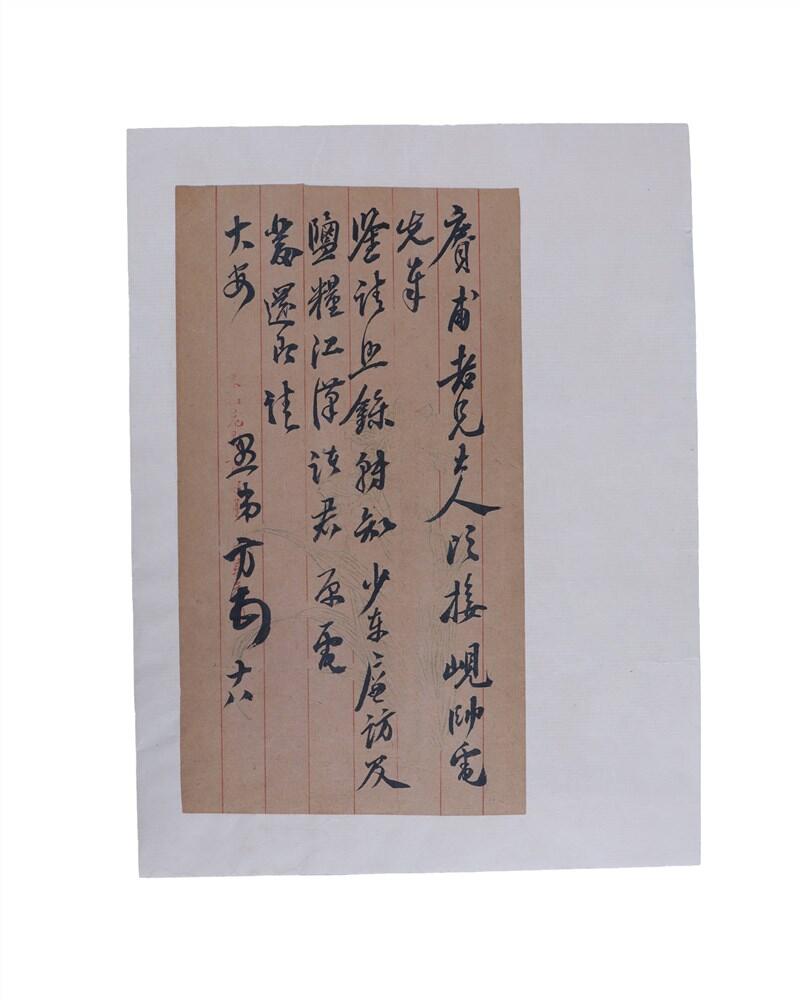 賡甫老兄大人頃接峴帥電
先奉
鑒請並錄轉知少東廉訪及
鹽糧江漢諸君原電
還即請
大安 愚弟方 十八